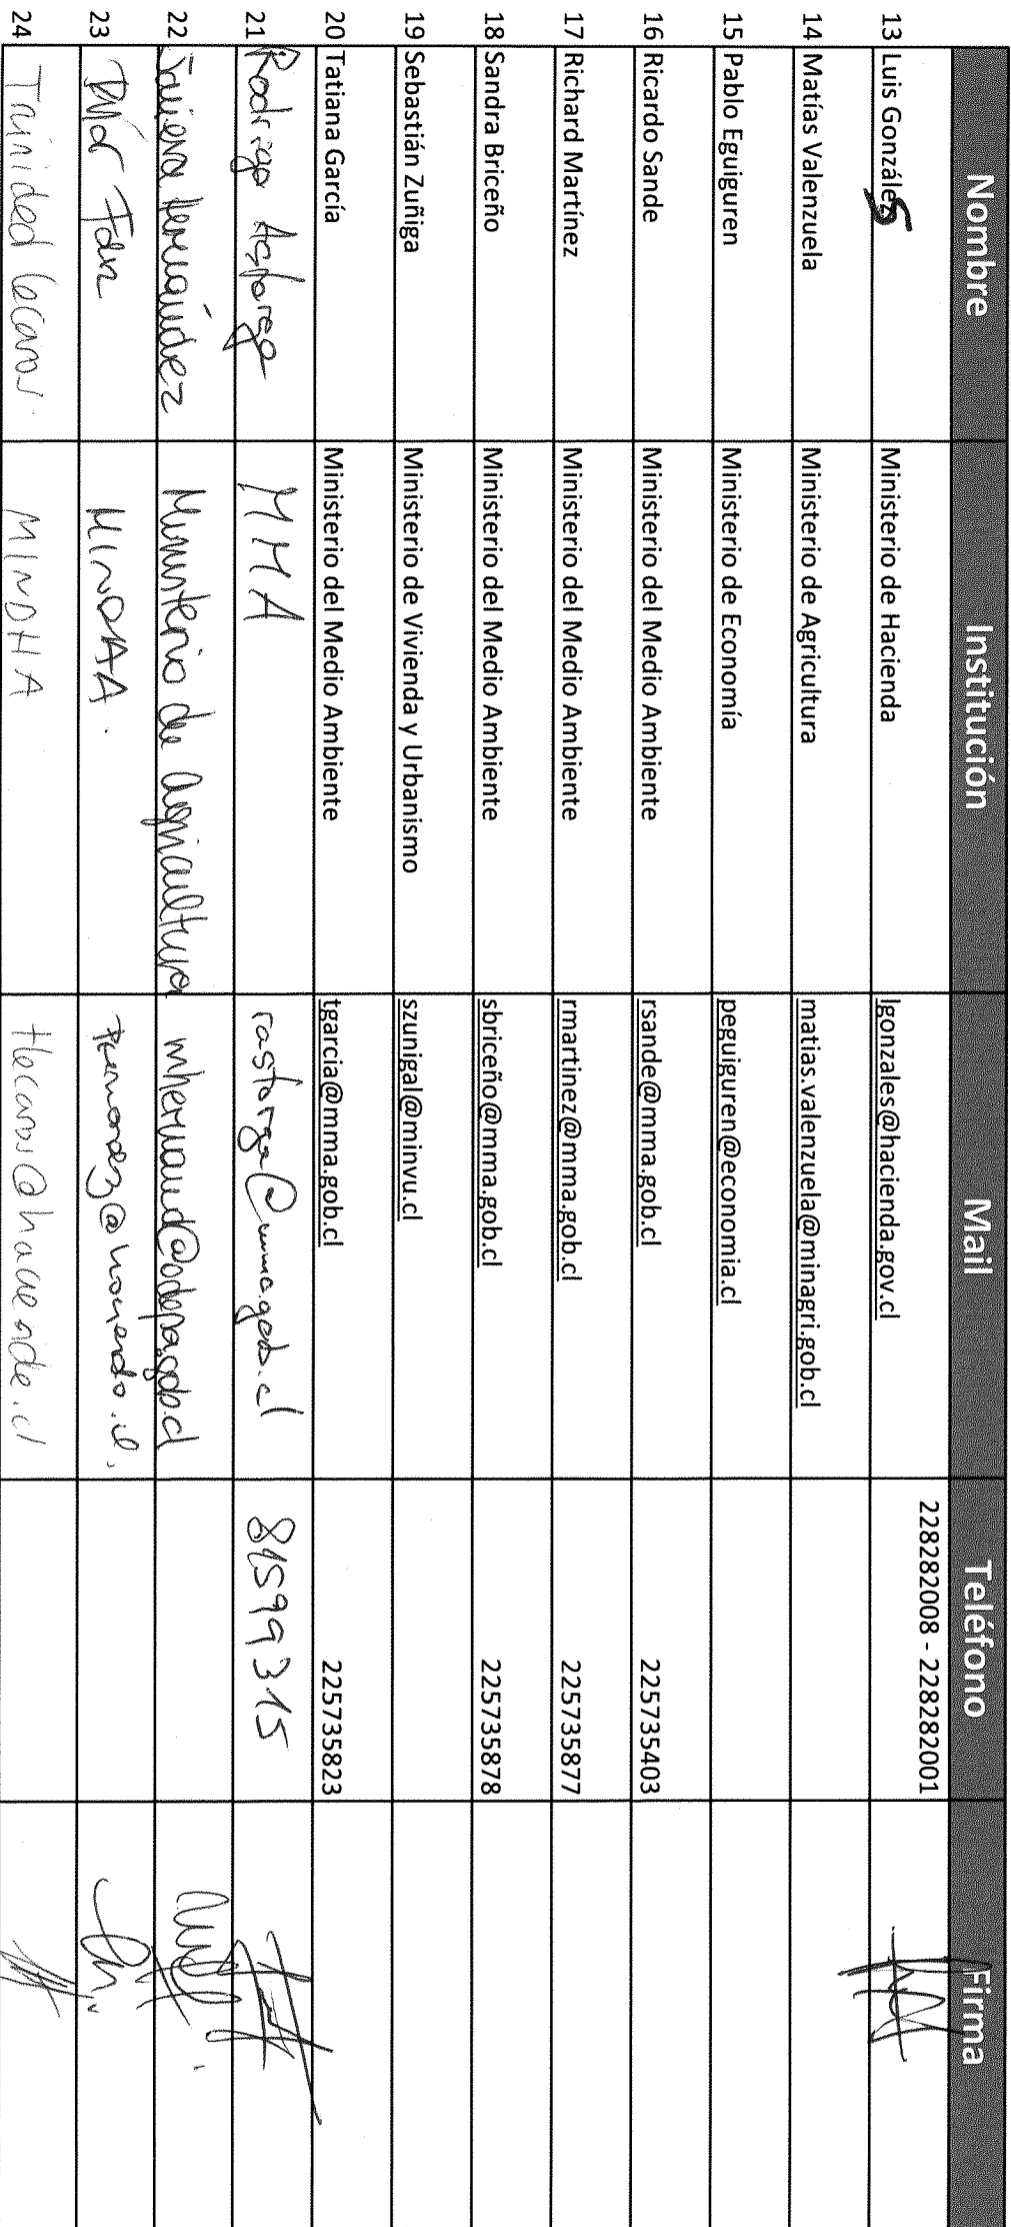 Nombre Institución Mail Teléfono Firma
13 Luis Gonzáles Ministerio de Hacienda lgonzales@hacienda.gov.cl 228282008 - 228282001
14 Matías Valenzuela Ministerio de Agricultura matias.valenzuela@minagri.gob.cl
15 Pablo Eguiguren Ministerio de Economía peguiguren@economia.cl
16 Ricardo Sande Ministerio del Medio Ambiente rsande@mma.gob.cl 225735403
17 Richard Martínez Ministerio del Medio Ambiente rmartinez@mma.gob.cl 225735877
18 Sandra Briceño Ministerio del Medio Ambiente sbriceño@mma.gob.cl 225735878
19 Sebastián Zuñiga Ministerio de Vivienda y Urbanismo szunigal@minvu.cl
20 Tatiana García Ministerio del Medio Ambiente tgarcia@mma.gob.cl 225735823
21 Rodrigo Astorga MMA rastorga@mma.gob.cl 81599315
22 Ministerio de Agricultura mhernand@odepa.gob.cl
23 MINDHA.
24 Trinidad Lecaros. MINDHA tlecaros@hacienda.cl